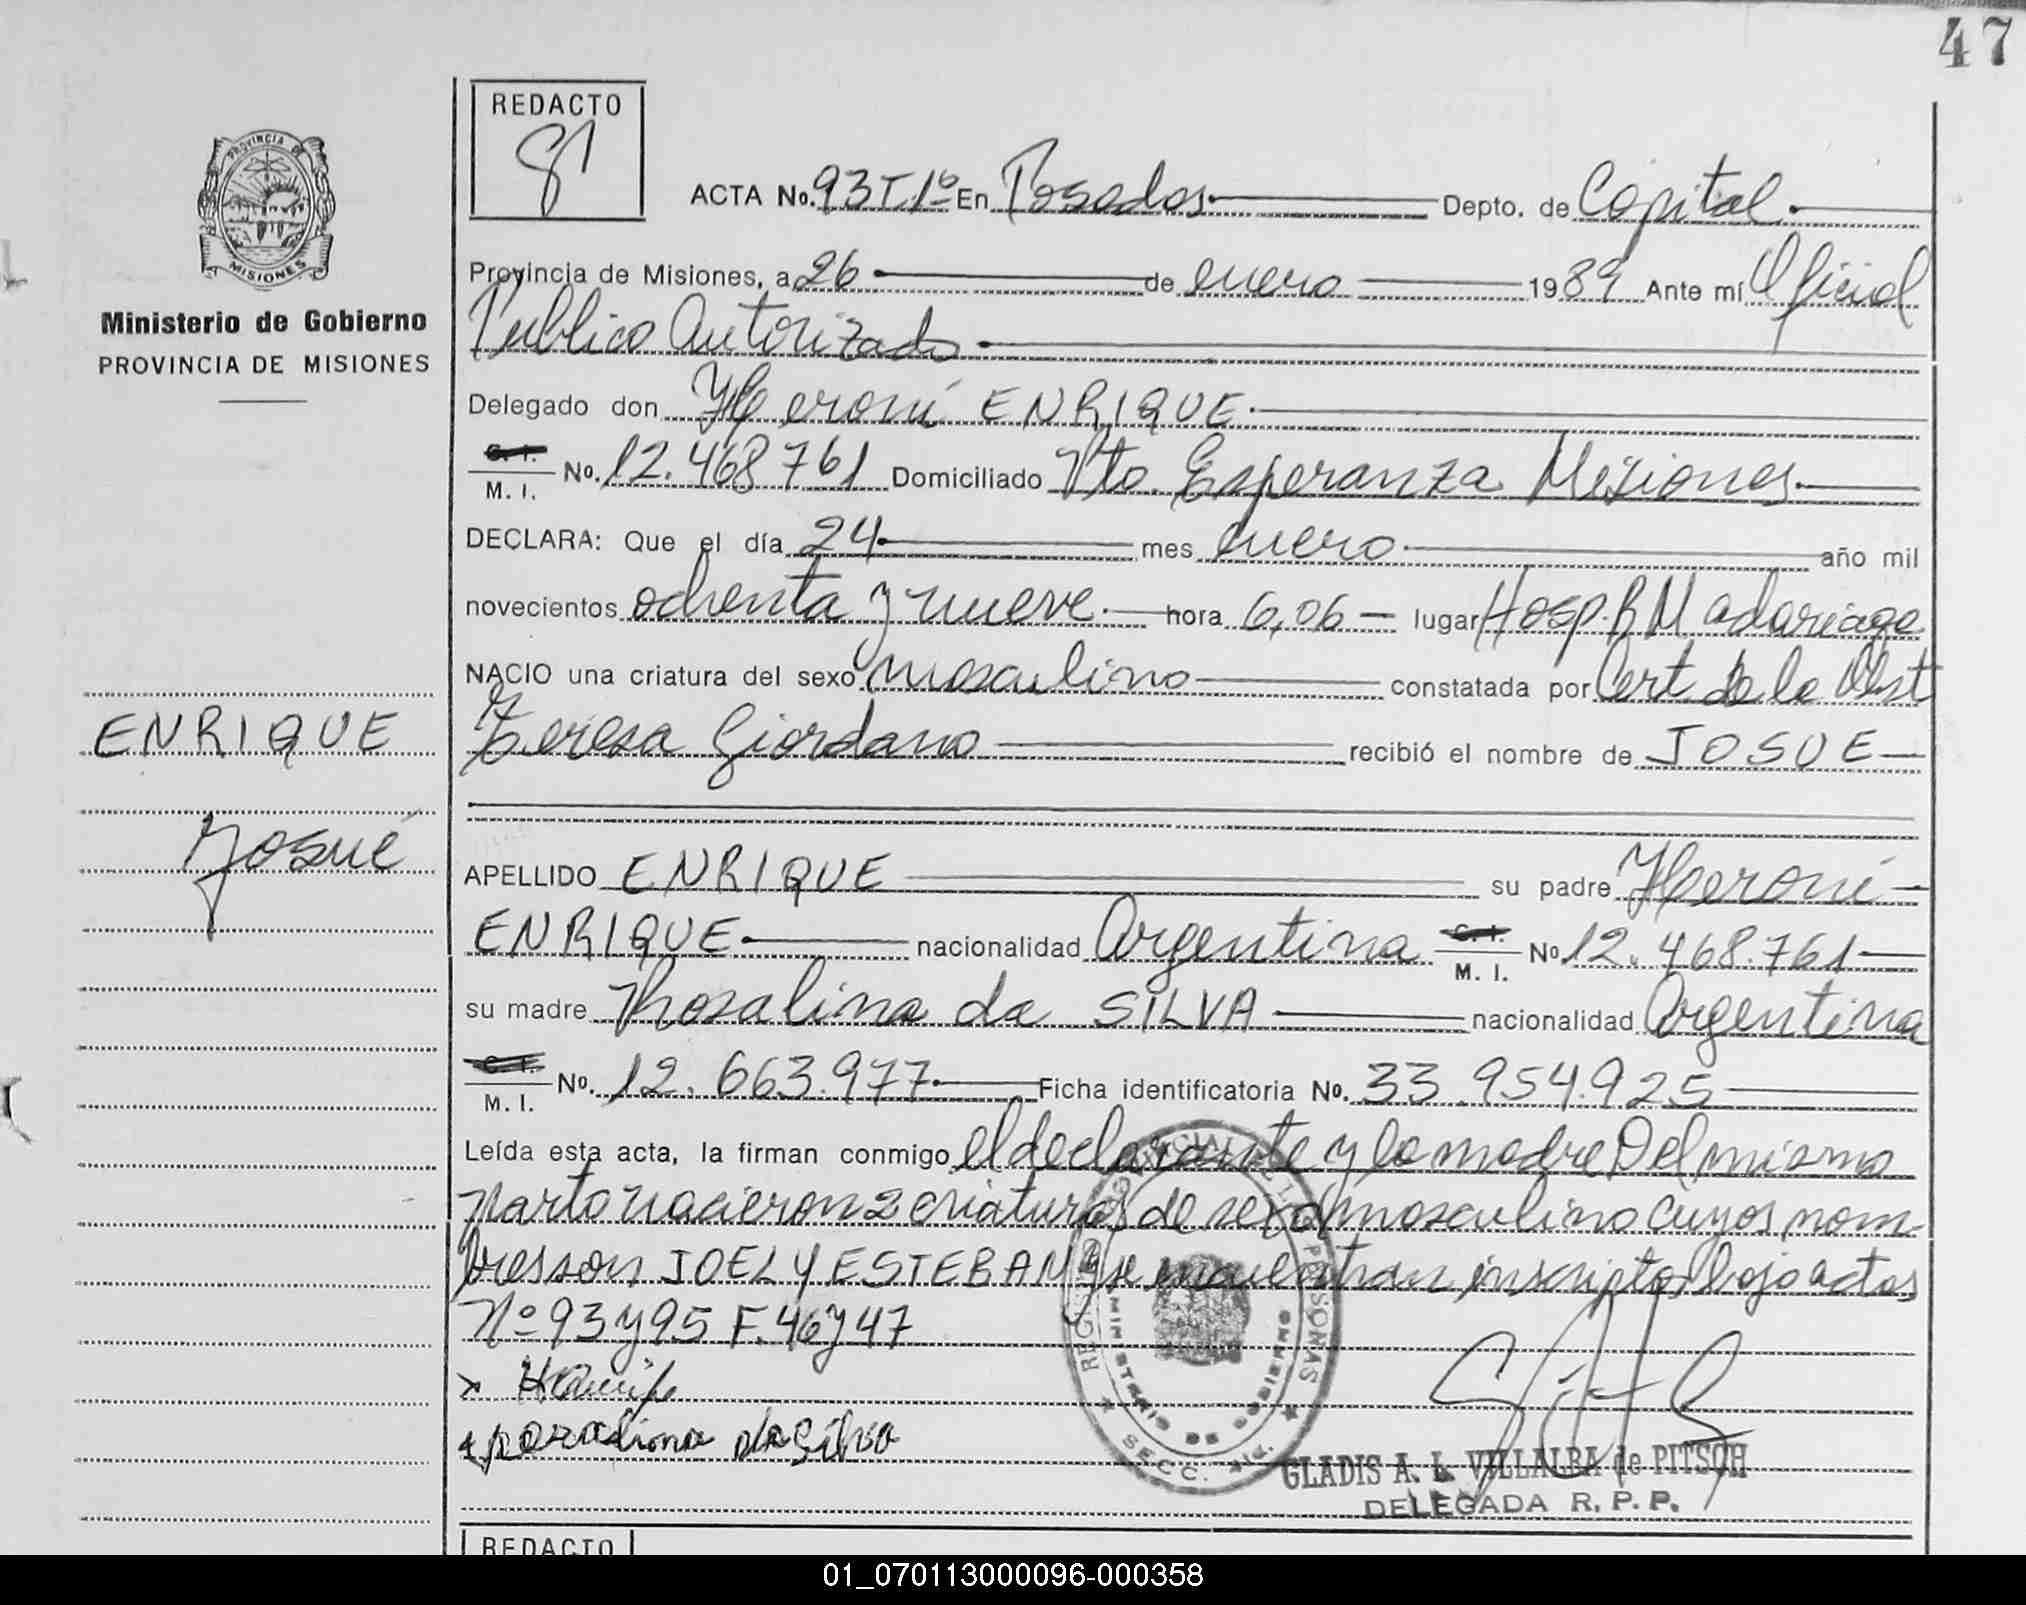 47
REDACTO
PROVINCIA DE MISIONES
Ministerio de Gobierno
PROVINCIA DE MISIONES
ACTA No. 93 T.1º En Posadas Depto. de Capital
Provincia de Misiones, a 26 de enero 1989 Ante mí Oficial
Publico Autorizado
Delegado don Heroni ENRIQUE
C. I. M. I. No. 12.468761 Domiciliado Pto Esperanza Misiones
DECLARA: Que el día 24 mes enero año mil
novecientos ochenta y nueve hora 6,06 lugar Hosp. R Madariaga
NACIO una criatura del sexo masculino constatada por Cert de la Obst
Teresa Giordano recibió el nombre de JOSUE
ENRIQUE
Josué
APELLIDO ENRIQUE su padre Heroni
ENRIQUE nacionalidad Argentina C. I. M. I. No 12.468.761
su madre Rosalina da SILVA nacionalidad Argentina
C. I. M. I. No. 12.663.977 Ficha identificatoria No. 33.954.925
Leída esta acta, la firman conmigo el declarante y la madre Del mismo
parto nacieron 2 criaturas de sexo masculino cuyos nom-
bres son JOEL Y ESTEBAN y se encuentran inscriptos bajo actas
Nº 93 y 95 F. 46 y 47
rosalina da Silva
GLADIS A. L. VILLALBA de PITSCH
DELEGADA R. P. P.
REDACTO
01_070113000096-000358